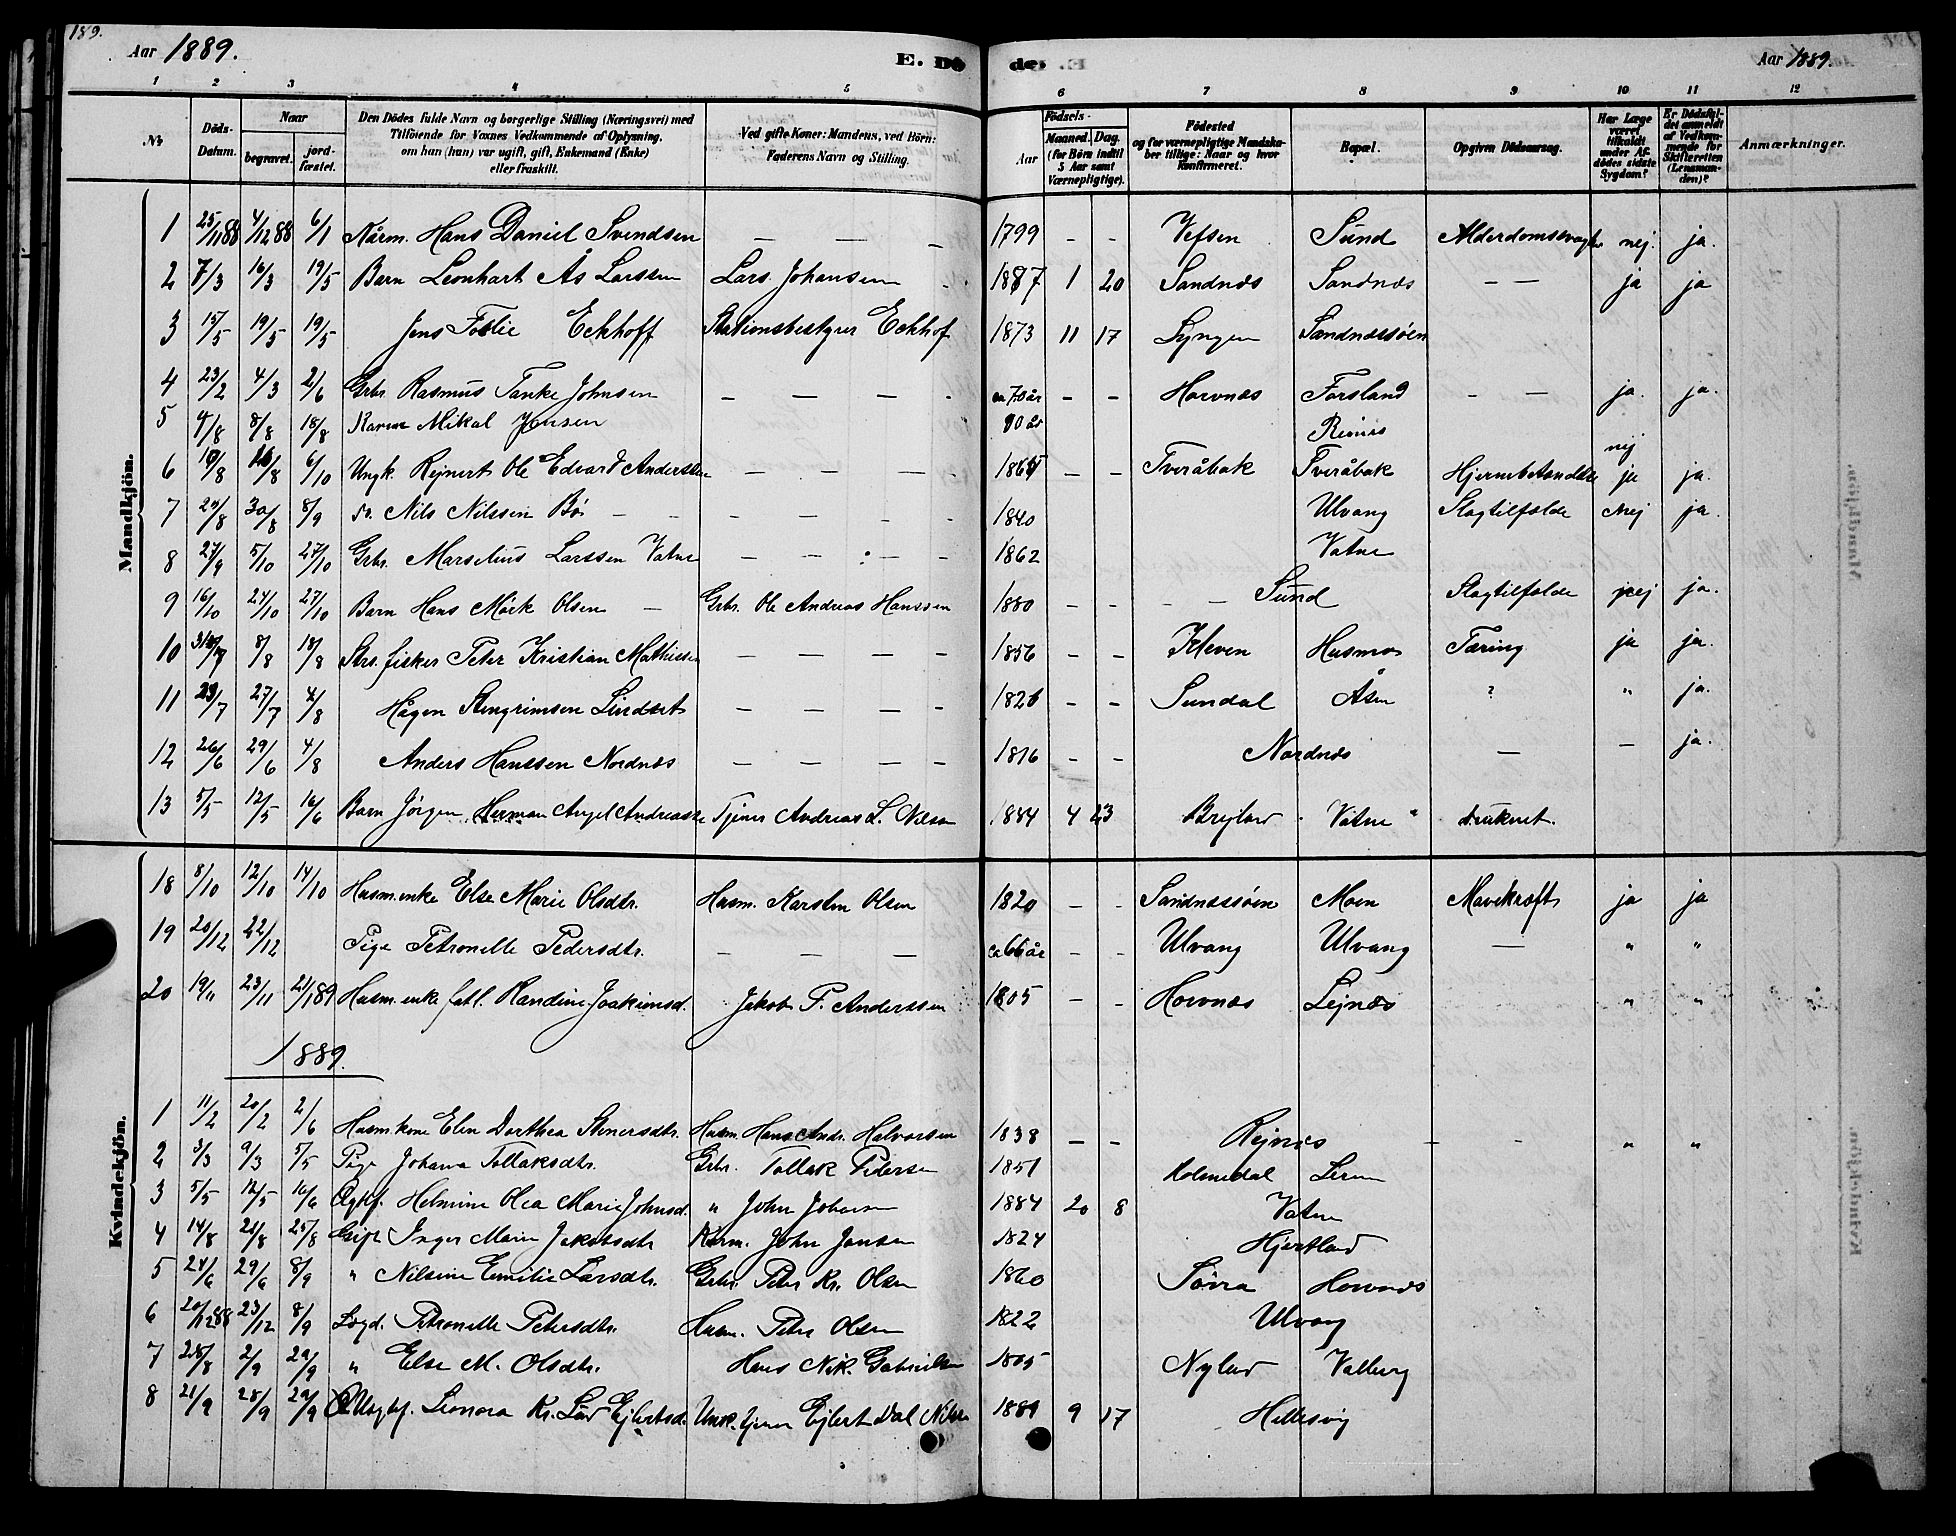 189.
Aar 1889.
E. Dö
de.
Aar 1889.
1 2 3 4 5 6 7 8 9 10 11 12
No.
Döds-Datum.
Naar
begravet.
jord-fæstet.
Den Dödes fulde Navn og borgerlige Stilling (Næringsvei) med
Tilföiende for Voxnes Vedkommende af Oplysning,
om han (hun) var ugift, gift, Enkemand (Enke)
eller fraskilt.
Ved gifte Koner: Mandens, ved Börn:
Faderens Navn og Stilling.
Födsels-
Aar
Maaned. Dag.
(for Börn indtil
5 Aar samt
Værnepligtige).
Födested
og for værnepligtige Mandska-
ber tillige: Naar og hvor
Konfirmeret.
Bopæl.
Opgiven Dödsaarsag.
Har Læge
været
tilkaldt
under Af-
dödes sidste
Sygdom?
Er Dödsfal-
det anmeldt
af Vedkom-
mende for
Skifteretten
(Lensman-
den)?
Anmærkninger.
Mandkjön.
1 25/11 88 4/12 88 6/1 Hans Daniel Svendsen — — — 1799 - - Vefsen Sund nej. ja.
2 7/3 16/3 19/5 Barn Leonhart Ås Larssen Lars Johansen 1887 1 20 Sandnæs Sandnæs — — ja ja
3 15/5 19/5 19/5 Jens Eckhoff Stationsbestyrer Eckhof 1873 11 17 Lyngen Sandnæssöen
4 23/2 4/3 2/6 Grbr. Rasmus Tanke Johnsen — — — - ca 70 år - - Hovnæs Forsland - — ja. ja.
5 4/8 8/8 18/8 Mikal Jensen 80 år
6 10/8 16/8 6/10 Ungk. Rejnert Ole Edvard Anderssen — — — — 1865 - - Tveråbak Tveråbak nej ja ja.
7 20/8 30/8 8/9 do. Nils Nilssen Bö — — — — - - 1840 Ulvang Slagtilfælde nej ja.
8 27/9 5/10 27/10 Grbr. Marselius Larssen Vatne — — - — 1862 Vatne
9 16/10 24/10 27/10 Barn Hans Mörk Olsen — Grbr. Ole Andreas Hanssen 1880 - - - — Sund Slagtilfælde nej ja.
10 8/8 18/8 Strs. fisker Peter Kristian Mathiesen — — — — 1856 - - Kleven Husmo Tæring ja ja.
11 23/7 27/7 4/8 Hågen Stengrimsen — — — — 1826 - - Sundal Åsen ? " ja.
12 26/6 29/6 4/8 Anders Hanssen Nordnæs — — — — 1816 - - Nordnæs — — ja.
13 5/5 12/5 16/6 Barn Jörgen Herman Angel Andreassen Tjener Andreas L. Nilsen 1884 4 23 Vatne druknet.
Kvindekjön.
18 8/10 12/10 14/10 Husm.enke Else Marie Olsdtr. Husm. Karsten Olsen 1820 - - Sandnæssöen Moen Mavekræft ja ja
19 20/12 22/12 Pige Petronelle Pedersdtr. — — — ca 66 år - - Ulvang Ulvang — " "
20 19/11 23/11 21/1 89 Husm.enke fatl. Randine Joakimsd. Jakob P. Anderssen 1805 - - Hovnæs Lejnæs " "
1889.
1 11/2 20/2 2/6 Husm.kone Elen Dorthea Stenersdtr. Husm. Hans Andr. Halvorsen 1838 — - Rejnæs - - " "
2 3/3 9/3 5/5 Pige Johana Tollaksdtr. Grbr. Tollak Pedersen 1851 Holmedal
3 5/5 12/5 16/6 Helmine Olea Marie Johnsd. " John Johnsen 1884 20 8 Vatne
4 14/8 21/8 25/8 Gift Inger Marie Jakobsdtr John Jansen 1824 Hjertland
5 24/6 29/6 8/9 " Nilsine Emilie Larsdtr. Grbr. Peter Kr. Olsen 1860 Sövra Hovnæs
6 20/12 88 23/12 8/9 Lægd. Petronelle Petersdtr. Husm. Peter Olsen 1822 Ulvang
7 28/8 2/9 29/9 " Else M. Olsdtr. Hans Nik. Gabrielsen 1805 Nyland Valberg
8 21/9 28/9 29/9 Leonora Kr. Ejlertsd. Ungk. tjener Ejlert Dal Nilsen 1889 9 17 Hellesvig
Mandkjön.
Kvindekjön.